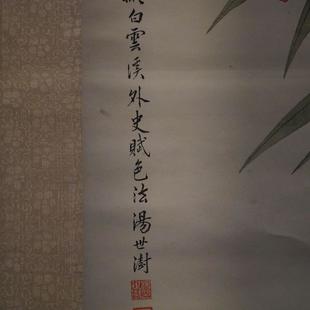 白雲溪外史賦色法湯世澍